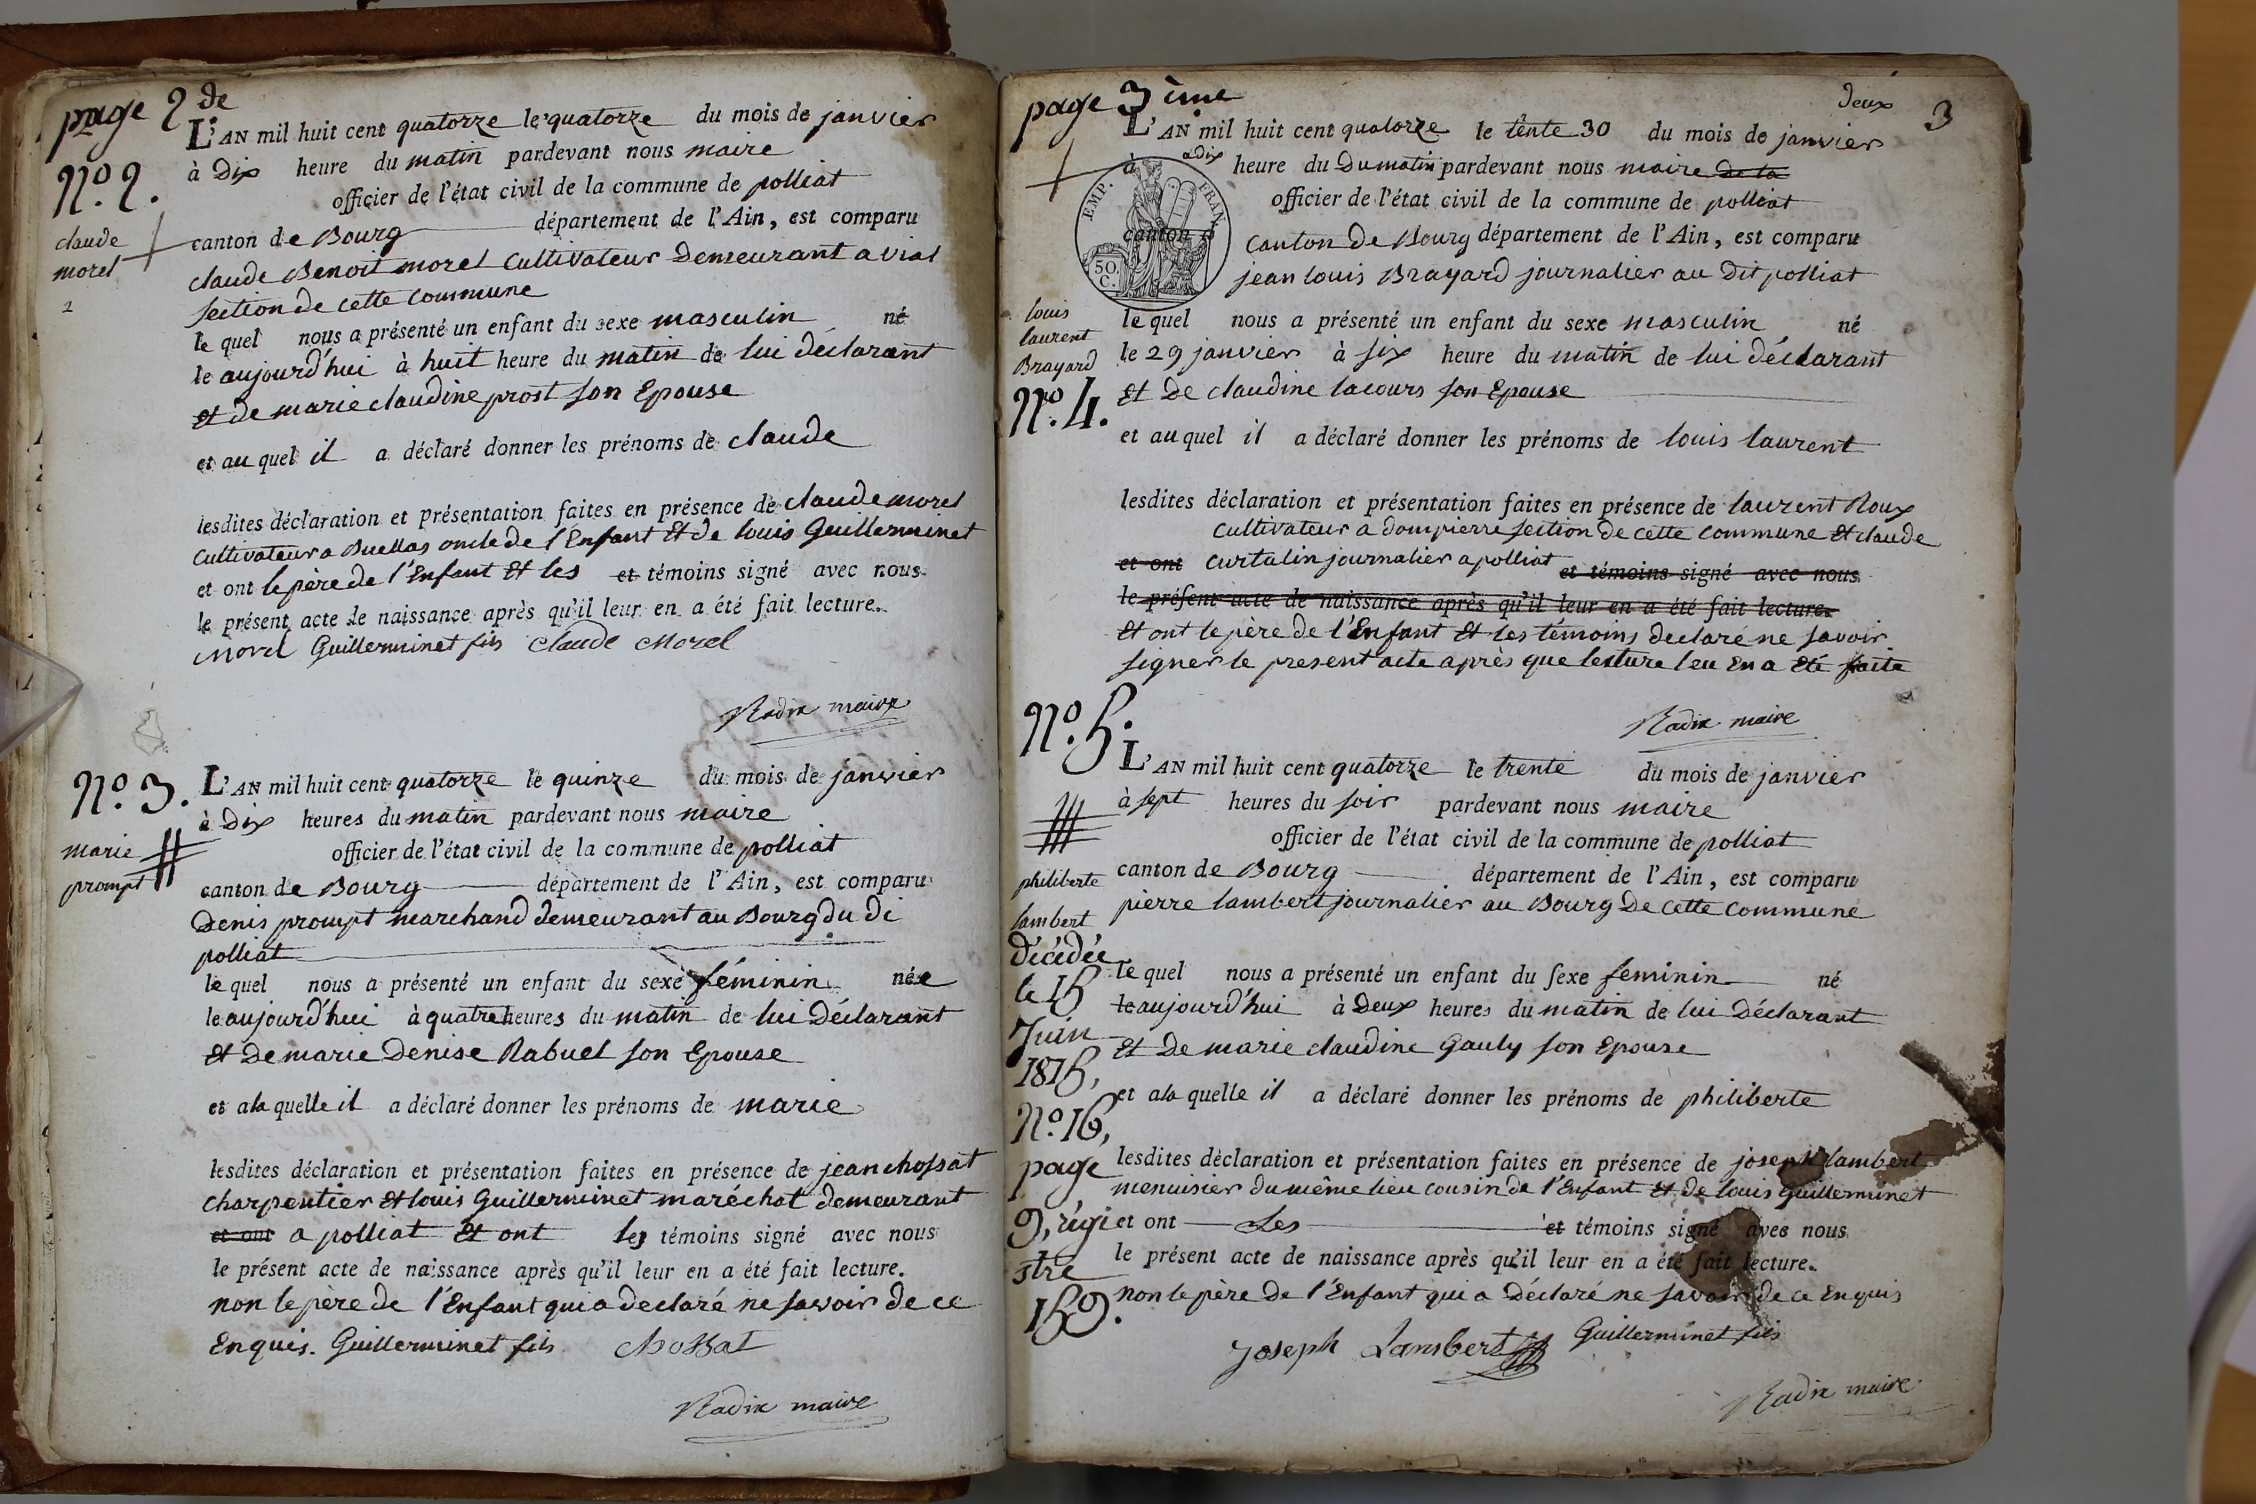 page 2 de
L'AN mil huit cent quatorze le quatorze du mois de janvier
N.o 2.
à Dix heure du matin pardevant nous maire
officier de l'état civil de la commune de polliat
claude
morel
2
canton de Bourg département de l'Ain, est comparu
claude Benoit morel cultivateur Demeurant a vial
section de cette commune
le quel nous a présenté un enfant du sexe masculin né
le aujourd'hui à huit heure du matin de lui déclarant
et de marie claudine prost son Epouse
et au quel il a déclaré donner les prénoms de claude
lesdites déclaration et présentation faites en présence de claude morel
cultivateur a Buellas oncle de l'Enfant Et de louis Guillerminet
et ont le père de l'Enfant Et les et témoins signé avec nous
le présent acte de naissance après qu'il leur en a été fait lecture.
Morel Guillerminet fils Claude Morel
Radix maire
N.o 3.
L'AN mil huit cent quatorze le quinze du mois de janvier
à Dix heures du matin pardevant nous maire
marie
prompt
officier de l'état civil de la commune de polliat
canton de Bourg département de l'Ain, est comparu
Denis prompt marchand demeurant au Bourg du di
polliat
le quel nous a présenté un enfant du sexe féminin née
le aujourd'hui à quatre heures du matin de lui Déclarant
Et De marie Denise Rabuel son Epouse
et a la quelle il a déclaré donner les prénoms de marie
lesdites déclaration et présentation faites en présence de jean chossat
charpentier Et louis Guillerminet maréchal demeurant
et ont a polliat Et ont les témoins signé avec nous
le présent acte de naissance après qu'il leur en a été fait lecture.
non le père de l'Enfant qui a declaré ne savoir de ce
Enquis. Guillerminet fils Chossat
Radix maire
page 3 ème
deux 3
L'AN mil huit cent quatorze le tente 30 du mois de janvier
à a dix heure du Du matin pardevant nous maire de la
officier de l'état civil de la commune de polliat
EMP. FRAN.
50. C.
canton d
canton De Bourg département de l'Ain, est comparu
jean louis Brayard journalier au Dit polliat
louis
laurent
Brayard
N.o 4.
le quel nous a présenté un enfant du sexe masculin né
le 29 janvier à six heure du matin de lui déclarant
Et De claudine lacours son Epouse
et au quel il a déclaré donner les prénoms de louis laurent
lesdites déclaration et présentation faites en présence de laurent Roux
cultivateur a dompierre section de cette commune Et claude
et ont curtalin journalier a polliat et témoins signé avec nous
le présent acte de naissance après qu'il leur en a été fait lecture.
Et ont le père de l'Enfant Et les témoins declaré ne savoir
signer le present acte après que lecture leu En a Eté faite
Radix maire
N.o 5.
L'AN mil huit cent quatorze le trente du mois de janvier
à sept heures du soir pardevant nous maire
officier de l'état civil de la commune de polliat
canton de Bourg département de l'Ain, est comparu
pierre lambert journalier au Bourg De cette commune
philiberte
lambert
Décédée
le 15
Juin
1815,
N.o 16,
page
9, régi
stre
159.
le quel nous a présenté un enfant du sexe feminin né
le aujourd'hui à Deux heures du matin de lui Déclarant
Et De marie claudine Gauly son Epouse
et a la quelle il a déclaré donner les prénoms de philiberte
lesdites déclaration et présentation faites en présence de joseph lambert
menuisier du même lieu cousin de l'Enfant Et de louis Guillerminet
et ont Les et témoins signé avec nous
le présent acte de naissance après qu'il leur en a été fait lecture.
non le père De l'Enfant qui a Déclaré ne savoir de ce Enquis
Joseph Lambert Guillerminet fils
Radix maire